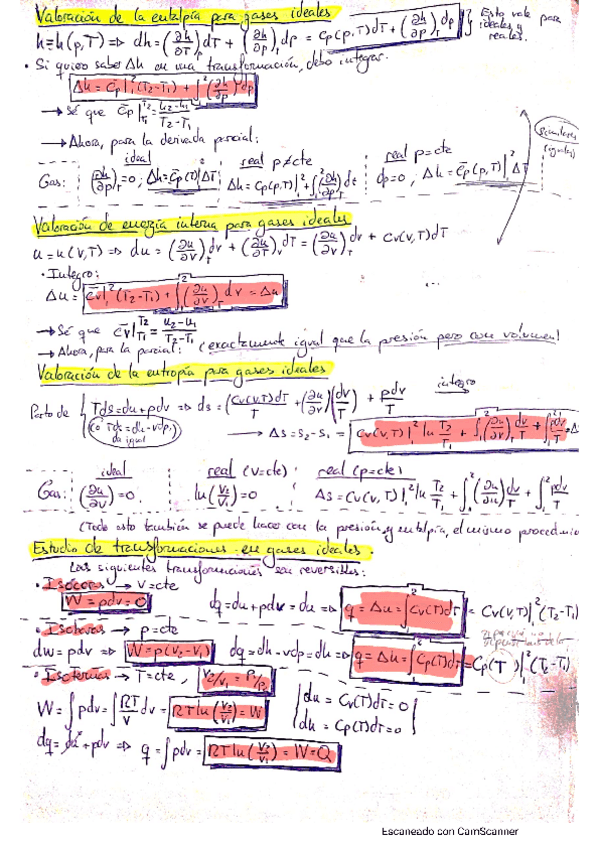 Valoración de la entalpía para gases ideales
h≡h(p,T) => dh = (∂h/∂T)_p dT + (∂h/∂p)_T dp = Cp(p,T)dT + (∂h/∂p)_T dp } Esto vale para ideales y reales.
• Si quiero saber Δh en una transformación, debo integrar.
Δh = C̄p|₁² (T₂-T₁) + ∫₁² (∂h/∂p)_T dp
→ Sé que C̄p|_T₁^T₂ = (h₂-h₁)/(T₂-T₁)
→ Ahora, para la derivada parcial:
ideal real p≠cte real p=cte
Gas: (∂h/∂p)_T = 0; Δh = Cp(T)|₁² ΔT Δh = Cp(p,T)|₁² + ∫₁² (∂h/∂p)_T dt dp=0, Δh = C̄p(p,T)|₁² ΔT
Valoración de energía interna para gases ideales
u = u(v,T) => du = (∂u/∂v)_T dv + (∂u/∂T)_v dT = (∂u/∂v)_T dv + Cv(v,T)dT
• Integro:
Δu = C̄v|₁² (T₂-T₁) + ∫₁² (∂u/∂v)_T dv = Δu
→ Sé que C̄v|_T₁^T₂ = (u₂-u₁)/(T₂-T₁)
→ Ahora, para la parcial: (exactamente igual que la presión pero con volumen!
Valoración de la entropía para gases ideales
Parto de { Tds = du + pdv => ds = Cv(v,T)dT/T + (∂u/∂v)(dv/T) + pdv/T integro
(ó Tds = dh - vdp, da igual) → Δs = S₂-S₁ = Cv(v,T)|₁² ln T₂/T₁ + ∫₁² (∂u/∂v)_T dv/T + ∫₁² pdv/T = Δ
ideal real (v=cte) real (p=cte)
Gas: (∂u/∂v) = 0. ln(v₂/v₁) = 0 Δs = Cv(v,T)|₁² ln T₂/T₁ + ∫₁² (∂u/∂v) dv/T + ∫₁² pdv/T
(Todo esto también se puede hacer con la presión y entalpía, el mismo procedimie
Estudio de transformaciones en gases ideales.
Las siguientes transformaciones son reversibles:
• Isócoras → v=cte
W = pdv = 0 dq = du + pdv = du => q = Δu = ∫₁² Cv(T)dT = Cv(v,T)|₁² (T₂-T₁)
• Isobaras → p=cte
dw = pdv => W = p(v₂-v₁) dq = dh - vdp = dh => q = Δh = ∫₁² Cp(T)dT = Cp(T)|₁² (T₂-T₁)
• Isotermas → T=cte, v₂/v₁ = P₁/P₂
W = ∫pdv = ∫ RT/v dv = RT ln(v₂/v₁) = W { du = Cv(T)dT = 0
dh = Cp(T)dT = 0 }
dq = du + pdv => q = ∫pdv = RT ln(v₂/v₁) = W = Q
Escaneado con CamScanner